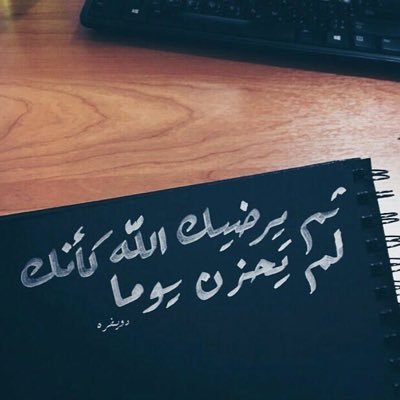 ثم يرضيك الله كأنك
لم تحزن يوما
دويفره